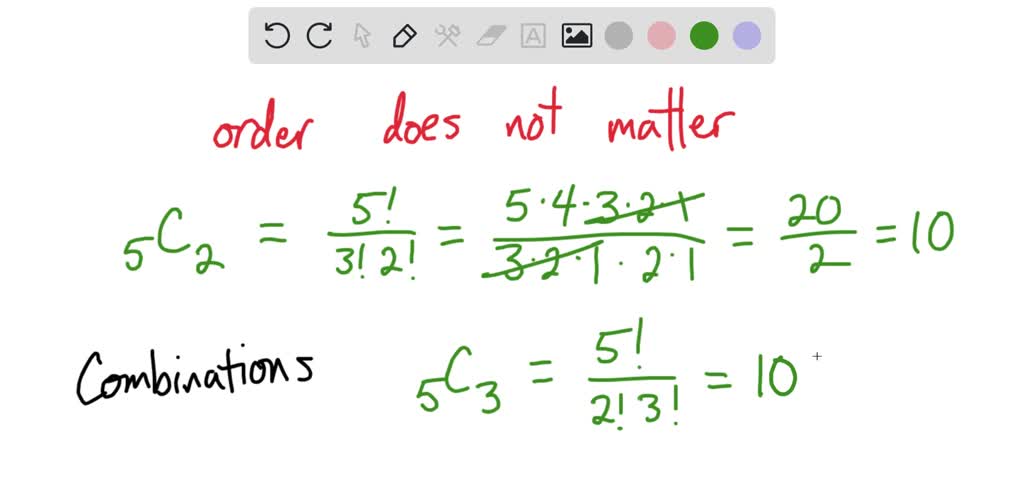 order does not matter
₅C₂ = 5!/3!2! = 5·4·3·2·1/3·2·1·2·1 = 20/2 = 10
Combinations ₅C₃ = 5!/2!3! = 10